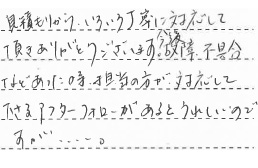 見積もりから、いろいろ丁寧に対応して
頂きありがとうございます。今後故障、不具合
などあった時、担当の方が対応して
下さるアフターフォローがあるとうれしいので
すが……。